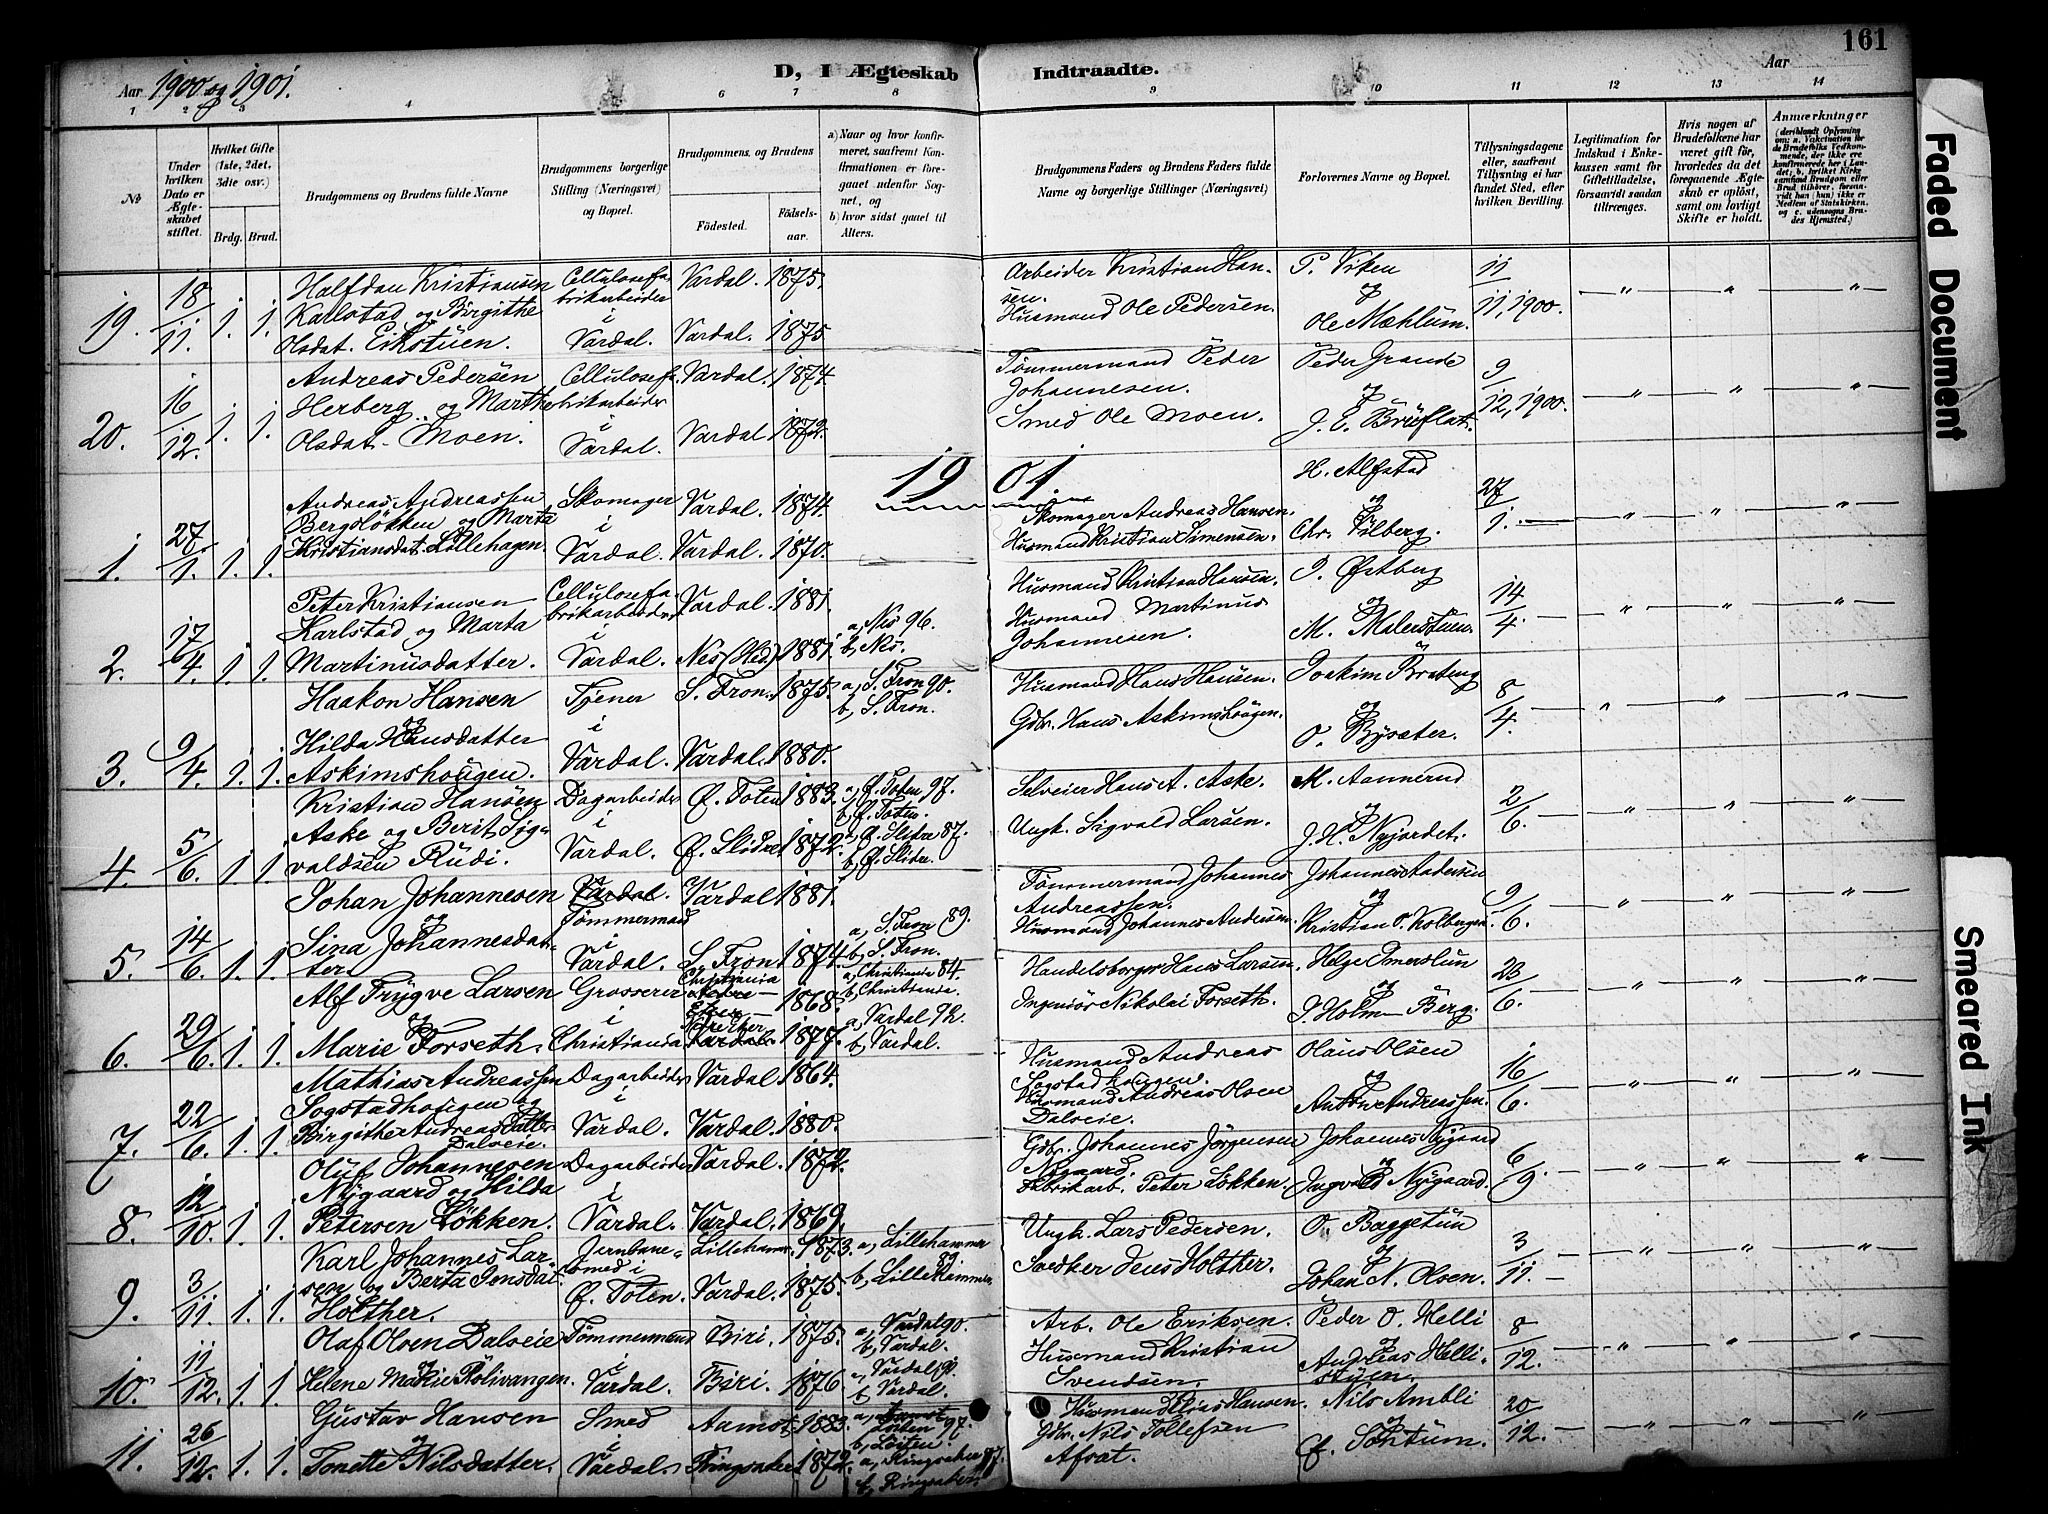 161
Aar 1900 og 1901.
D, I Ægteskab Indtraadte.
Aar
1 2 3 4 6 7 8 9 10 11 12 13 14
No
Under hvilken Dato er Ægteskabet stiftet.
Hvilket Gifte (1ste, 2det, 3dte osv.)
Brdg. Brud.
Brudgommens og Brudens fulde Navne
Brudgommens borgerlige Stilling (Næringsvei) og Bopæl.
Brudgommens og Brudens
Födested.
Födselsaar.
a) Naar og hvor konfirmeret, saafremt Konfirmationen er foregaaet udenfor Sognet, og
b) hvor sidst gaaet til Alters.
Brudgommens Faders og Brudens Faders fulde Navne og borgerlige Stillinger (Næringsvei)
Forlovernes Navne og Bopæl.
Tillysningsdagene eller, saafremt Tillysning ei har fundet Sted, efter hvilken Bevilling.
Legitimation for Indskud i Enkekassen samt for Giftetilladelse, forsaavidt saadan tiltrænges.
Hvis nogen af Brudefolkene har været gift för, hvorledes da det foregaaende Ægteskab er oplöst, samt om lovligt Skifte er holdt.
Anmærkninger
19. 18/11. 1. 1. Halfdan Kristiansen Karlstad og Birgithe Olsdat. Eikstuen. Cellulosefabrikarbeider i Vardal. Vardal. 1875. Vardal. 1875 Arbeider Kristian Hansen. Husmand Ole Pedersen. P. Viken og Ole Mæhlum. 11/11, 1900. " " "
20. 16/12. 1. 1. Andreas Pedersen Herberg og Marthe Olsdat. Moen. Cellulosefabrikarbeider i Vardal. Vardal. 1874. Vardal 1872. Tømmermand Peder Johannesen. Smed Ole Moen. Peder Grande og J. E. Bruflat. 9/12, 1900. " " "
1901.
1. 27/1. 1. 1. Andreas Andreassen Bergsløkken og Marta Kristiansdat. Lillehagen. Skomager i Vardal. Vardal. 1874. Vardal. 1870. Skomager Andreas Hansen. Husmand Kristian Simensen. H. Alfstad og Chr. Filberg. 27/1. " " "
2. 17/4. 1. 1. Peter Kristiansen Karlstad og Marta Martinusdatter. Cellulosefabrikarbeider i Vardal. Vardal. 1881. Nes (Hed.) 1881. a, Nes 96. b, Nes. Husmand Kristian Hansen. Husmand Martinus Johannesen. J. Østberg og M. Malerstuen. 14/4. " " "
3. 9/4. 1. 1. Haakon Hansen og Hilda Hansdatter Askimshougen. Tjener i Vardal. S. Fron. 1875. Vardal. 1880. a, S. Fron 90. b, S. Fron. Husmand Hans Hansen. Gdbr. Hans Askimshougen. Joakim Braberg og O. Bysæter. 8/4. " " "
4. 5/6. 1. 1. Kristian Hansen Aske og Berit Sigvaldsen Rudi. Dagarbeider i Vardal. Ø. Toten 1883. Ø. Slidre 1872. a, Ø. Toten 97. b, Ø. Toten. a, Ø. Slidre 87. b, Ø. Slidre. Selveier Hans A. Aske. Ungk. Sigvald Larsen. M. Aannerud og J. H. Nyjordet. 2/6. " " "
5. 14/6. 1. 1. Johan Johannesen og Sina Johannesdatter Vardal. Tømmermand i Vardal. Vardal 1881. S. Fron 1874. a, S. Fron 89. b, S. Fron. Tømmermand Johannes Andreassen. Husmand Johannes Andersen. Johannes Andersen og Kristian O. Kolbergen. 9/6. " " "
6. 29/6. 1. 1. Alf Trygve Larsen og Marie Forseth. Grosserer i Christiania Christiania 1868. Vardal. 1877. a, Christiania 84. b, Christiania. a, Vardal 92. b, Vardal. Handelsborger Hans Larsen. Ingeniør Nikolai Forseth. Helge Smerslun og J. Holm Berg. 23/6. " " "
7. 22/6. 1. 1. Mathias Andreassen Sogstadhougen og Birgithe Andreasdatter Dalveie. Dagarbeider i Vardal. Vardal. 1864. Vardal. 1880. Husmand Andreas Sogstadhougen. Husmand Andreas Olsen Dalveie. Olaus Olsen og Anton Andreassen. 16/6. " " "
8. 12/10. 1. 1. Oluf Johannesen Nygaard og Hilda Petersen Løkken. Dagarbeider i Vardal. Vardal. 1872. Vardal. 1869. Gdbr. Johannes Jørgensen Nygaard. Fabrikarb. Peter Løkken. Johannes Nygaard og Ingvald Nygaard. 6/9. " " "
9. 3/11. 1. 1. Karl Johannes Larsen og Berta Jensdat. Holther. Jernbanesmed i Ø. Toten. Lillehamer. 1873. Vardal. 1875. a, Lillehammer 89. b, Lillehammer. Ungk. Lars Pedersen. Snedker Jens Holther. O. Baggetun og Johan N. Olsen. 3/11. " " "
10. 11/12. 1. 1. Olaf Olsen Dalveie og Helene Marie Rolivangen. Tømmermand i Vardal. Biri. 1875. Biri. 1876 a, Vardal 90. b, Vardal. a, Vardal 91. b, Vardal. Arb. Ole Eriksen. Husmand Kristian Svendsen. Peder O. Helli og Andreas Hellistuen. 8/12. " " "
11. 26/12. 1. 1. Gustav Hansen og Tonette Nilsdatter. Smed i Vardal. Aamot. 1883. Ringsaker. 1872. a, Løiten 97. b, Løiten. a, Ringsaker 87. b, Ringsaker. Husmand Hans Hansen. Gdbr. Nils Tollefsen Afsæt. Nils Ambli og E. Sontum. 20/12. " " "
Faded Document
Smeared Ink